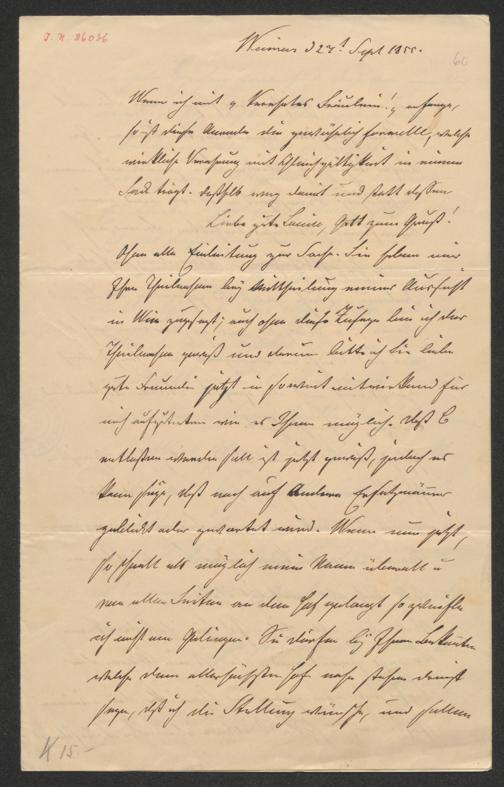 J. N. 86036
Weimar d 27t Sept 1855.
60
Wenn ich mit „Verehrtes Fräulein!„ anfange,
so ist diese Anrede die gewöhnlich formelle, welche
wirkliche Verehrung mit Gleichgiltigkeit in einem
Sack trägt. deßhalb weg damit und statt dessen
Liebe gute Louise, Gott zum Gruß!
Ohne alle Einleitung zur Sache. Sie haben mir
Ihre Theilnahme bey Mittheilung meiner Aussicht
in Wien zugesagt; auch ohne diese Zusage bin ich der
Theilnahme gewiß und darum bitte ich Sie liebe
gute Freundin jetzt in soweit mitwirkend für
mich aufzutreten wie es Ihnen möglich. daß C
entlassen werden soll ist jetzt gewiß, jedoch es
kann sein, daß noch auf andere Ersatzmänner
geblickt oder gewartet wird. Wenn nun jetzt,
so schnell als möglich mein Name überall u
von allen Seiten an den Hof gelangt so zweifle
ich nicht am Gelingen. Sie dürfen bey Ihren Bekannten
welche dem allerhöchsten Hof nahe stehen dreist
sagen, daß ich die Stellung wünsche, und sollten
K 15.-